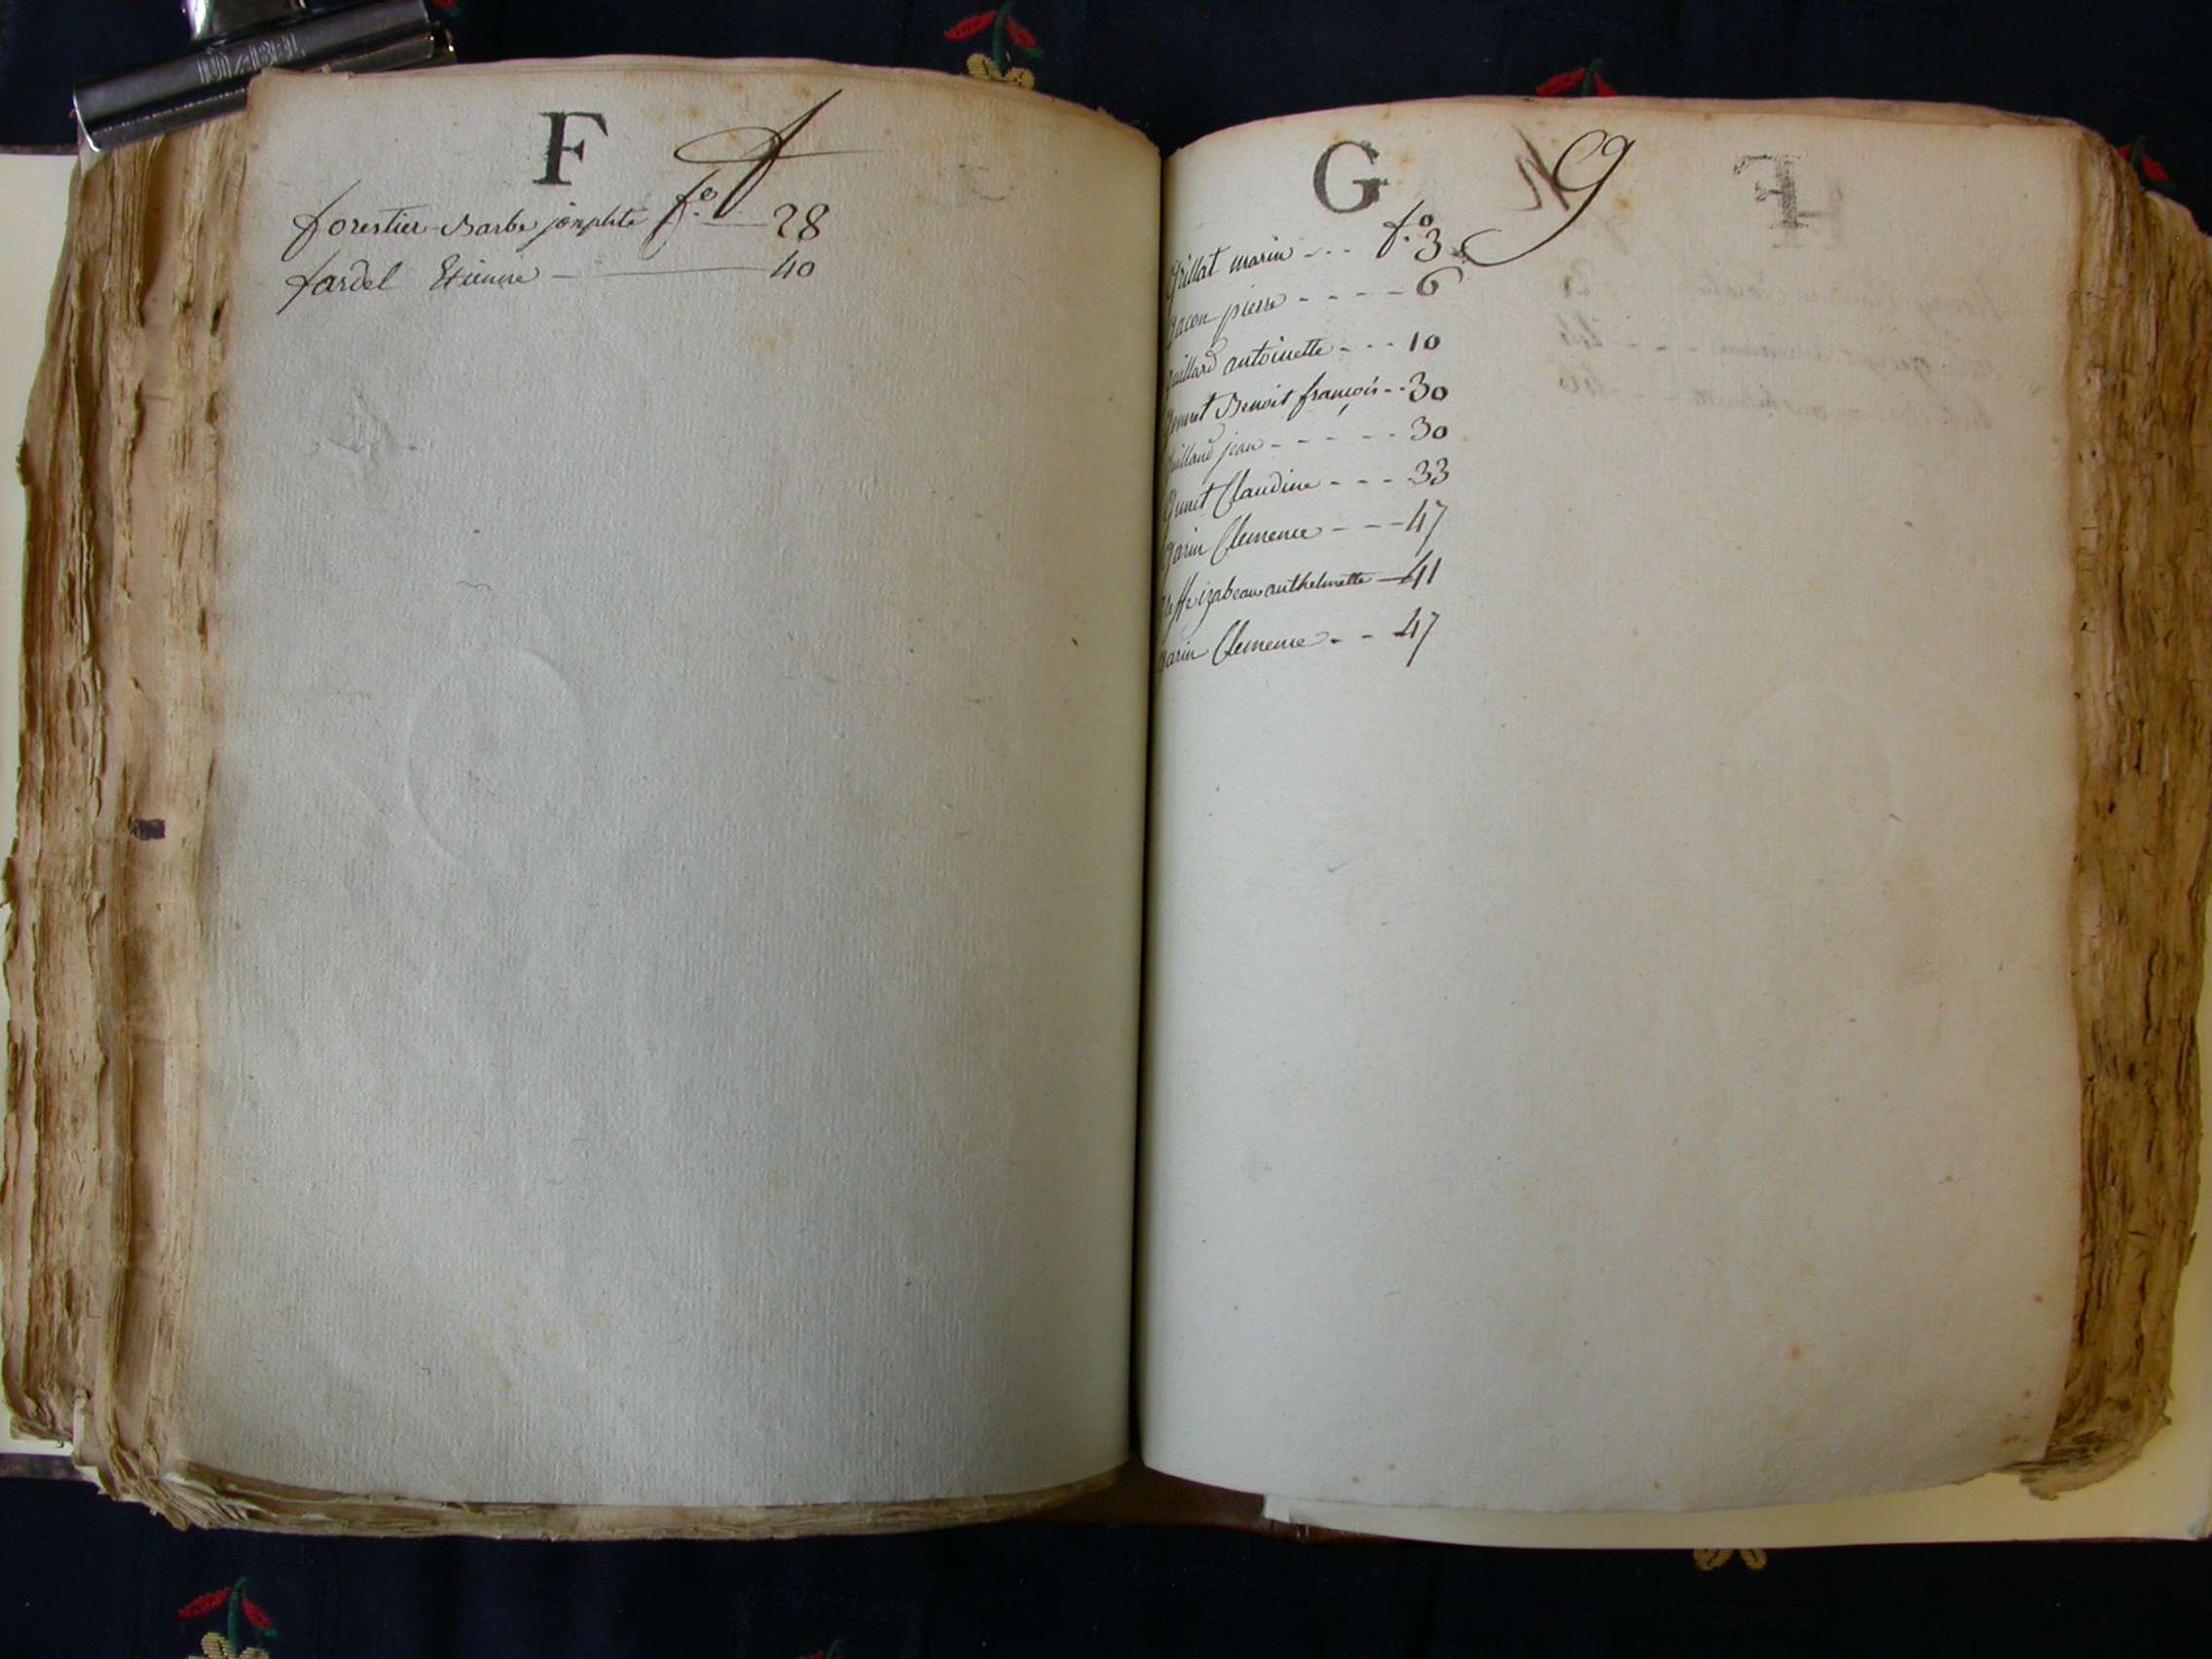 F f
forestier Barbe josephte f.° 28
fardel Etienne 40
G g
Grillat marin - - - f.° 3
gacon pierre - - - - - 6
guillard antoinette - - - 10
Benoit françois - - 30
jean - - - - - - 30
Claudine - - - - 33
garin Clemence - - - 47
izabeau anthelmette 41
garin Clemence - - 47